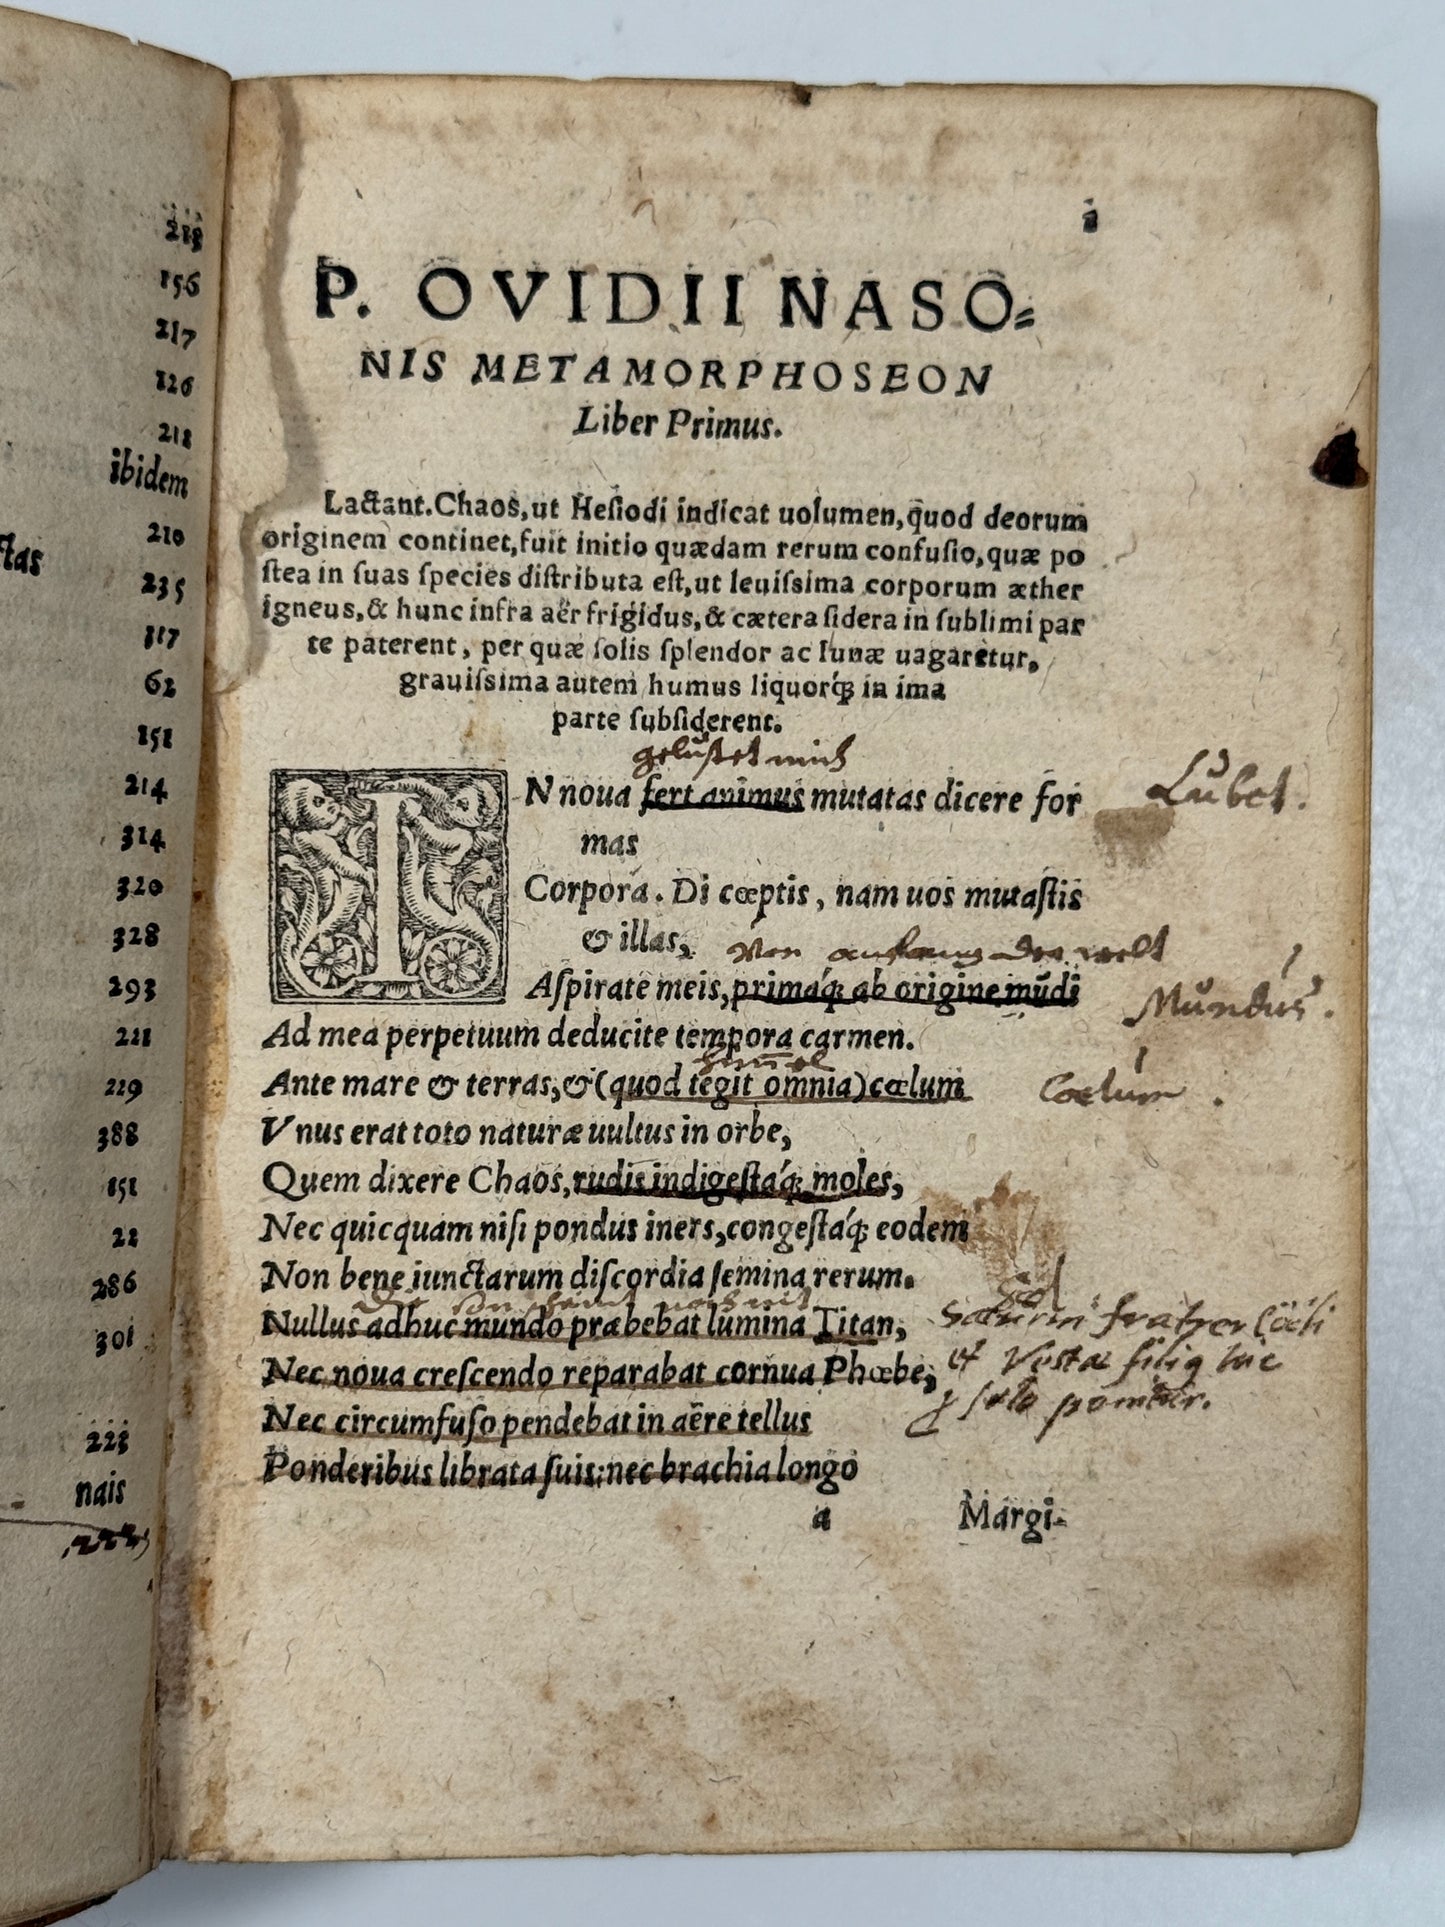 218
156
217
126
218
ibidem
210
ctas
235
117
62
151
214
314
320
328
293
211
219
388
151
22
286
301
223
nais
1
P. OVIDII NASO=
NIS METAMORPHOSEON
Liber Primus.
Lactant.Chaos,ut Hesiodi indicat uolumen,quod deorum
originem continet,fuit initio quædam rerum confusio,quæ po
stea in suas species distributa est,ut leuissima corporum æther
igneus,& hunc infra aër frigidus,& cætera sidera in sublimi par
te paterent, per quæ solis splendor ac lunæ uagaretur,
grauissima autem humus liquorq́; in ima
parte subsiderent.
gelüstet mich
IN noua fert animus mutatas dicere for
Lubet.
mas
Corpora. Di cœptis, nam uos mutastis
& illas,
Von anfang der welt
Aspirate meis,primaq́; ab origine mūdi
Mundus.
Ad mea perpetuum deducite tempora carmen.
himel
Ante mare & terras,&(quod tegit omnia)cœlum
Coelum.
Vnus erat toto naturæ uultus in orbe,
Quem dixere Chaos,rudis indigestaq́; moles,
Nec quicquam nisi pondus iners,congestaq́; eodem
Non bene iunctarum discordia semina rerum.
Sol
Nullus adhuc mundo præbebat lumina Titan,
Saturni frater Cœli
Nec noua crescendo reparabat cornua Phœbe,
et Vestæ filius hic
Nec circumfuso pendebat in aëre tellus
sole ponitur.
Ponderibus librata suis:nec brachia longo
a Margi-